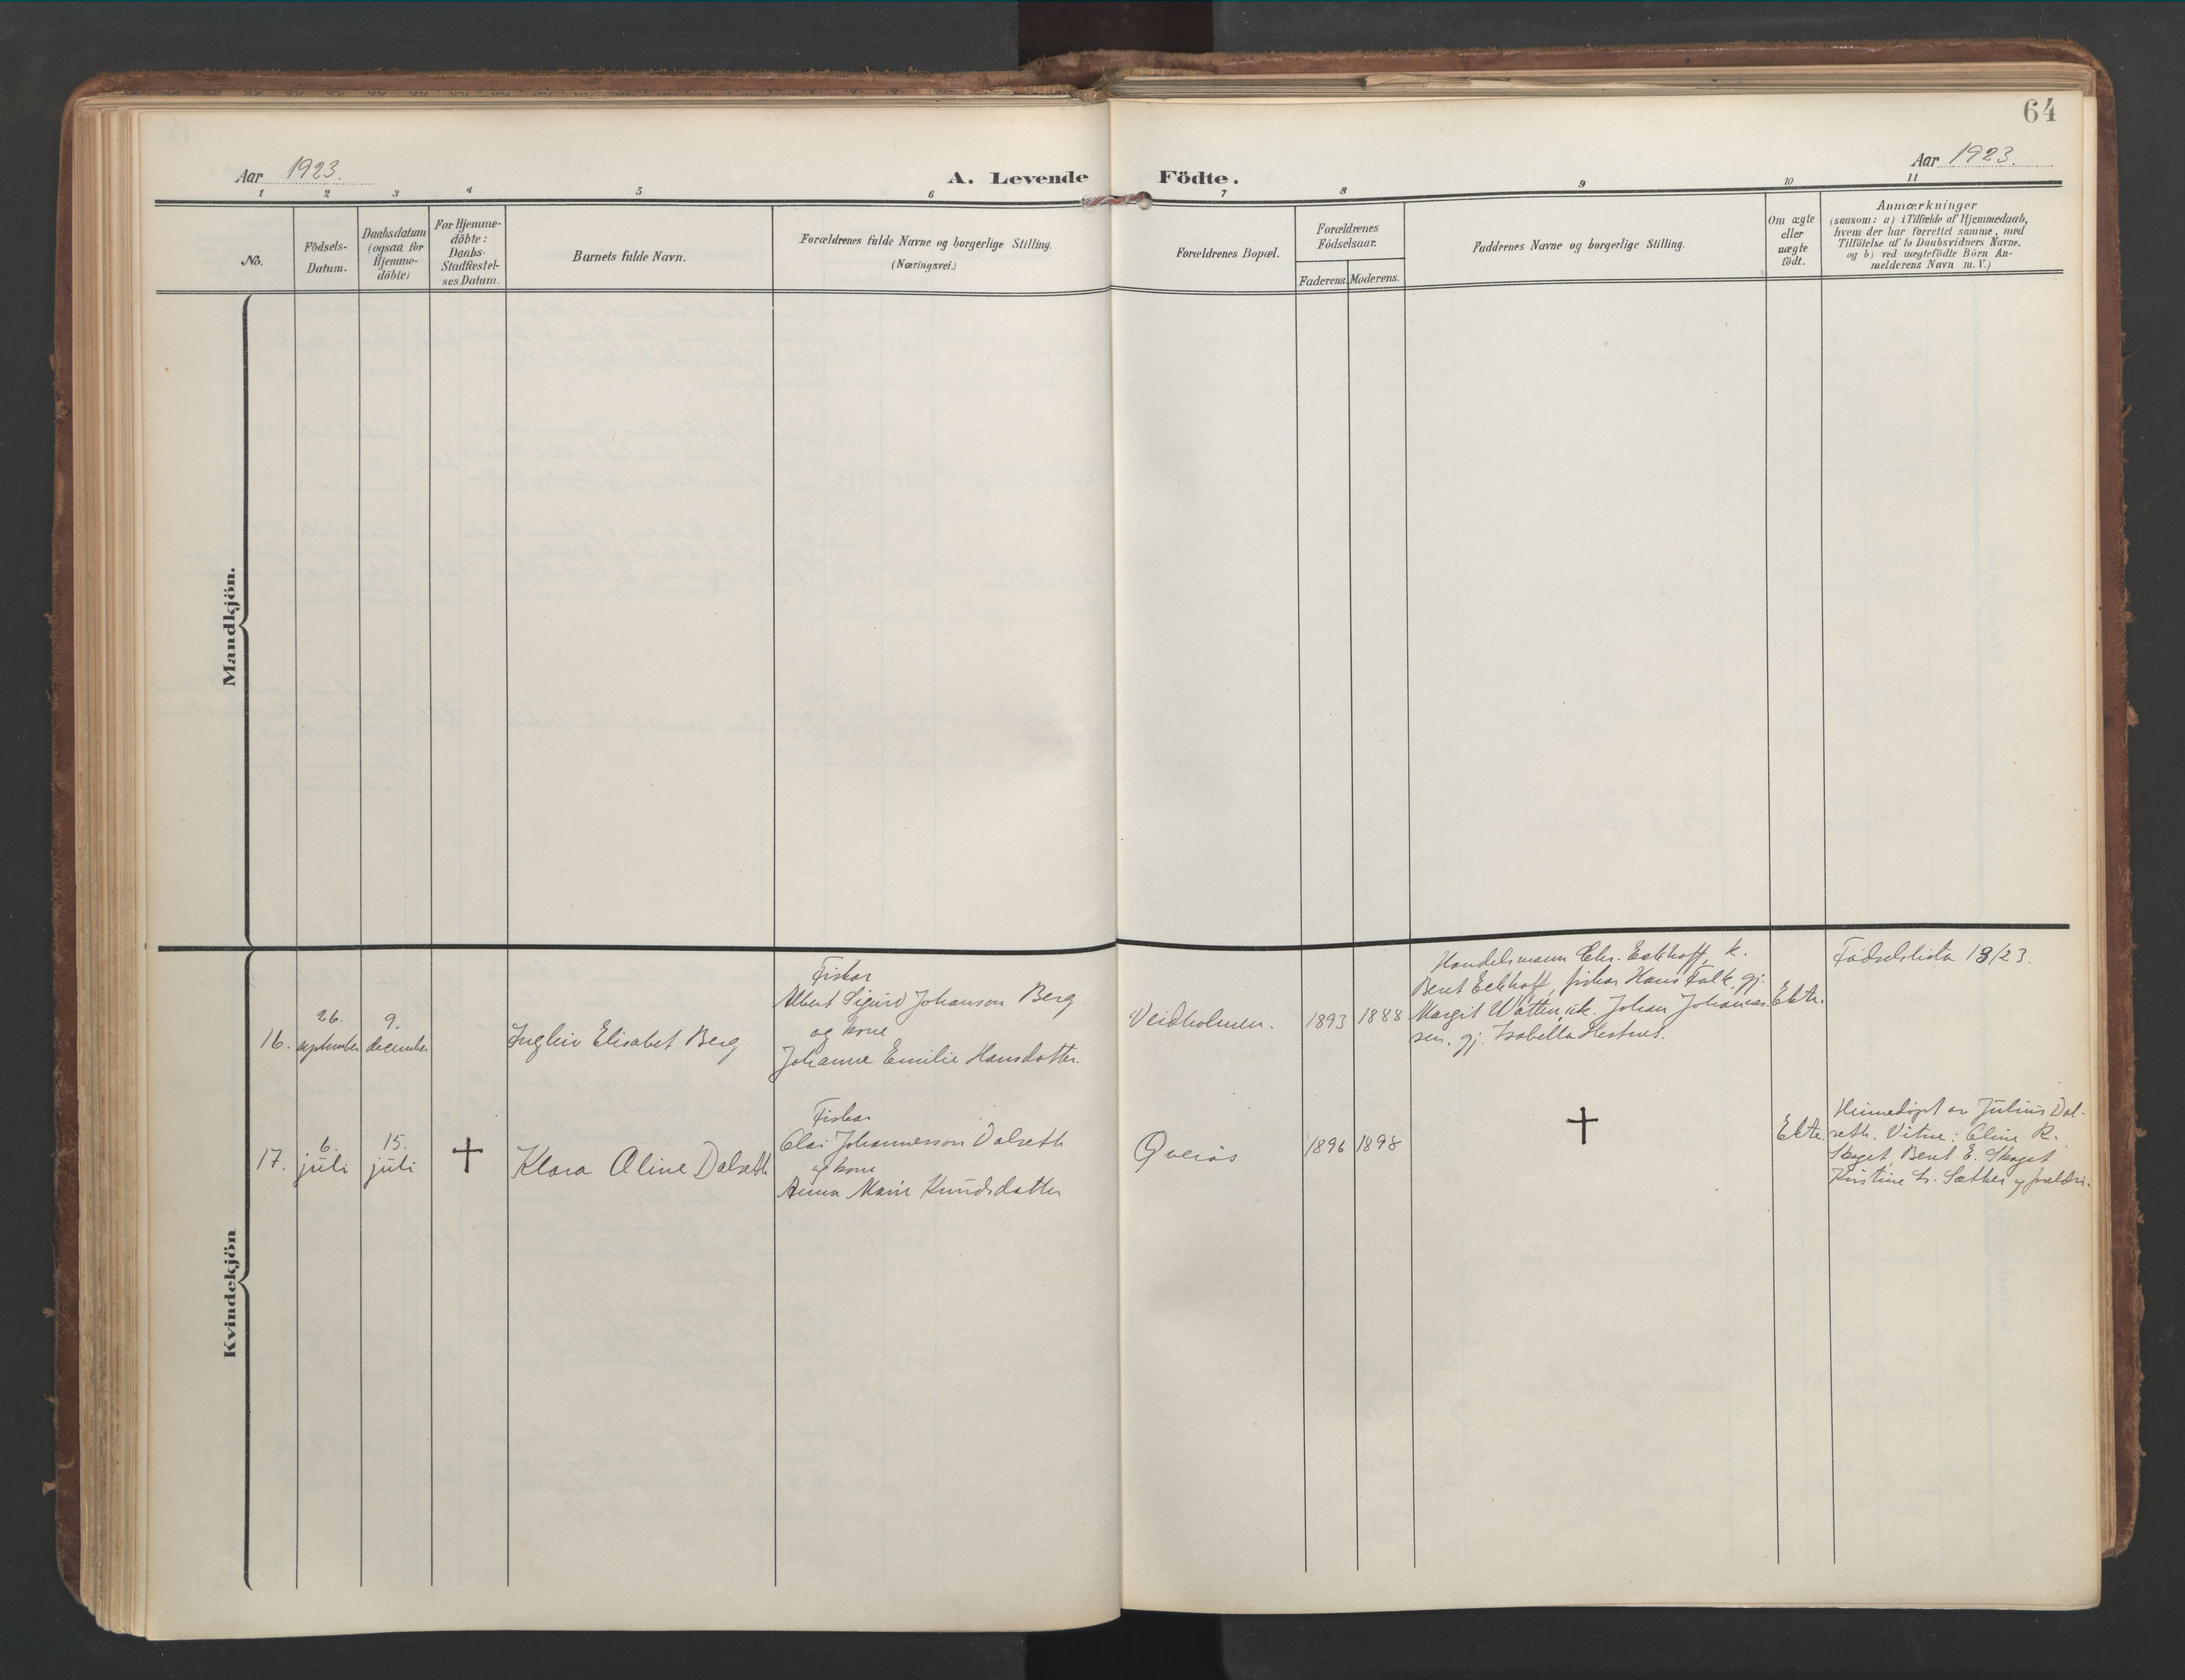 64
Aar 1923.
A. Levende Födte.
Aar 1923.
1 2 3 4 5 6 7 8 9 10 11
No.
Födsels-
Datum.
Daabsdatum
(ogsaa for
Hjemme-
döbte)
For Hjemme-
döbte:
Daabs-
Stadfæstel-
ses Datum.
Barnets fulde Navn.
Forældrenes fulde Navne og borgerlige Stilling.
(Næringsvei.)
Forældrenes Bopæl.
Forældrenes
Födselsaar.
Faderens. Moderens.
Faddernes Navne og borgerlige Stilling.
Om ægte
eller
uægte
födt.
Anmærkninger
(saasom: a) i Tilfælde af Hjemmedaab,
hvem der har forrettet samme, med
Tilföielse af to Daabsvidners Navne.
og b) ved uægtefödte Börn An-
melderens Navn m. V.)
Mandkjön.
Kvindekjön
16.
26.
september
9.
december
Elisabet Berg
Fiskar
Albert Sigurd Johanson Berg
og kone
Johanne Emilie Hansdatter.
Veidholmen.
1893
1888
Handelsmann Chr. Eckhoff, k.
Berit Eckhoff, fiskar Hans Falk, gj.
Margit Watten, uk. Johan Johannes-
sen, gj. Isabella Hestnes.
Ekte.
Fødselslista 18/23.
17.
6.
juli
15.
juli
†
Klara Oline Dalseth
Fiskar
Olai Johannesson Dalseth
og kone
Anna Marie Knudsdatter
1896
1898
†
Ekte.
Heimedøpt av Julius Dal-
seth. Vitne: Oline R.
Skaget, Berit E. Skaget
Kristine L. Sæther og foreldri.